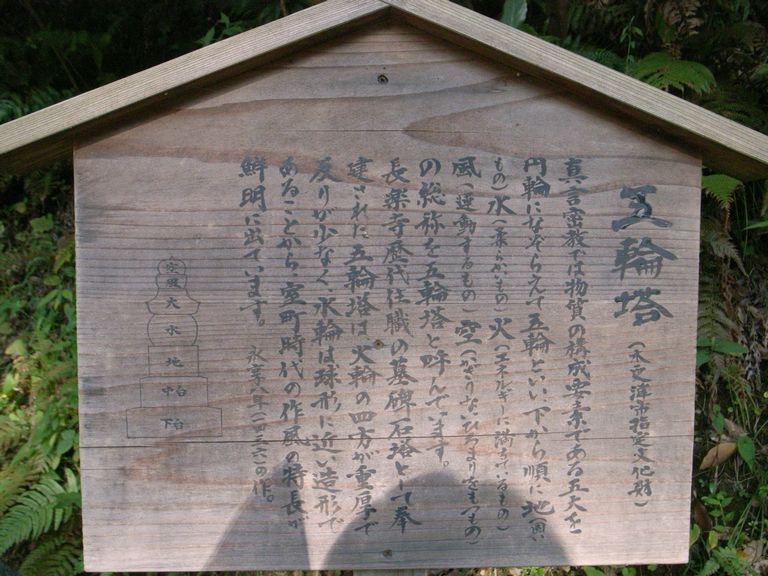 五輪塔
(木更津市指定文化財)
真言密教では物質の構成要素である五大を
円輪になぞらえて五輪といい、下から順に地(固い
もの)水(柔らかいもの)火(エネルギーに満ちているもの)
風(運動するもの)空(かぎりないひろまりをもつもの)
の総称を五輪塔と呼んでいます。
長楽寺歴代住職の墓碑石塔として奉
建された五輪塔は、火輪の四方が重厚で
反りが少なく、水輪は球形に近い造形で
あることから、室町時代の作風の特長が
鮮明に出ています。
永享八年(一四三六)の作。
空
風
火
水
地
中台
下台